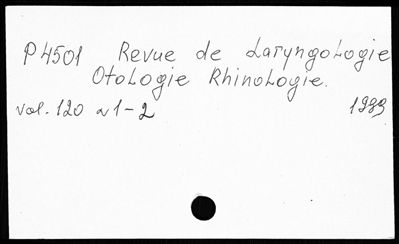 P4501 Revue de Laryngologie
Otologie Rhinologie.
vol. 120 n 1-2 1999